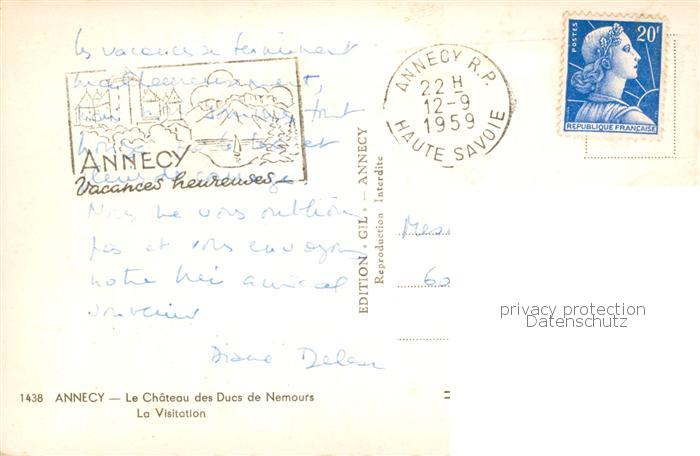 les vacances se terminent
malheureusement,
nous sommes tout
et
Nous ne vous oublions
pas et vous envoyons
notre très amical
souvenir
Diane
ANNECY
Vacances heureuses
ANNECY R.P.
22 H
12-9
1959
HAUTE SAVOIE
POSTES
20f
REPUBLIQUE FRANÇAISE
EDITION "GIL" - ANNECY
Reproduction Interdite
Mes
60
privacy protection
Datenschutz
1438 ANNECY — Le Château des Ducs de Nemours
La Visitation